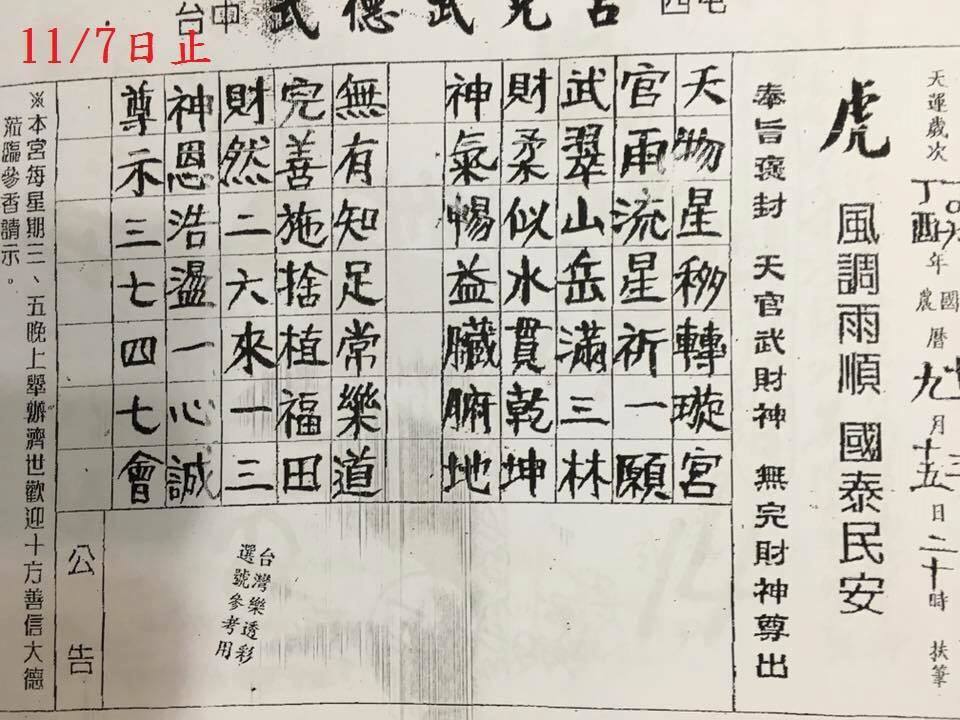 11/7日止
台中
天運歲次丁酉年農國曆九月十五日二十時 扶筆
虎
風調雨順 國泰民安
奉旨褒封 天官武財神 無完財神尊出
天物星移轉璇宮
官雨流星祈一願
武翠山岳滿三林
財柔似水貫乾坤
神氣暢益臟腑地
無有知足常樂道
完善施捨植福田
財然二六來一三
神恩浩盪一心誠
尊示三七四七會
公告
台灣樂透彩
選號參考用
※本宮每星期三、五晚上舉辦濟世歡迎十方善信大德
蒞臨參香請示。